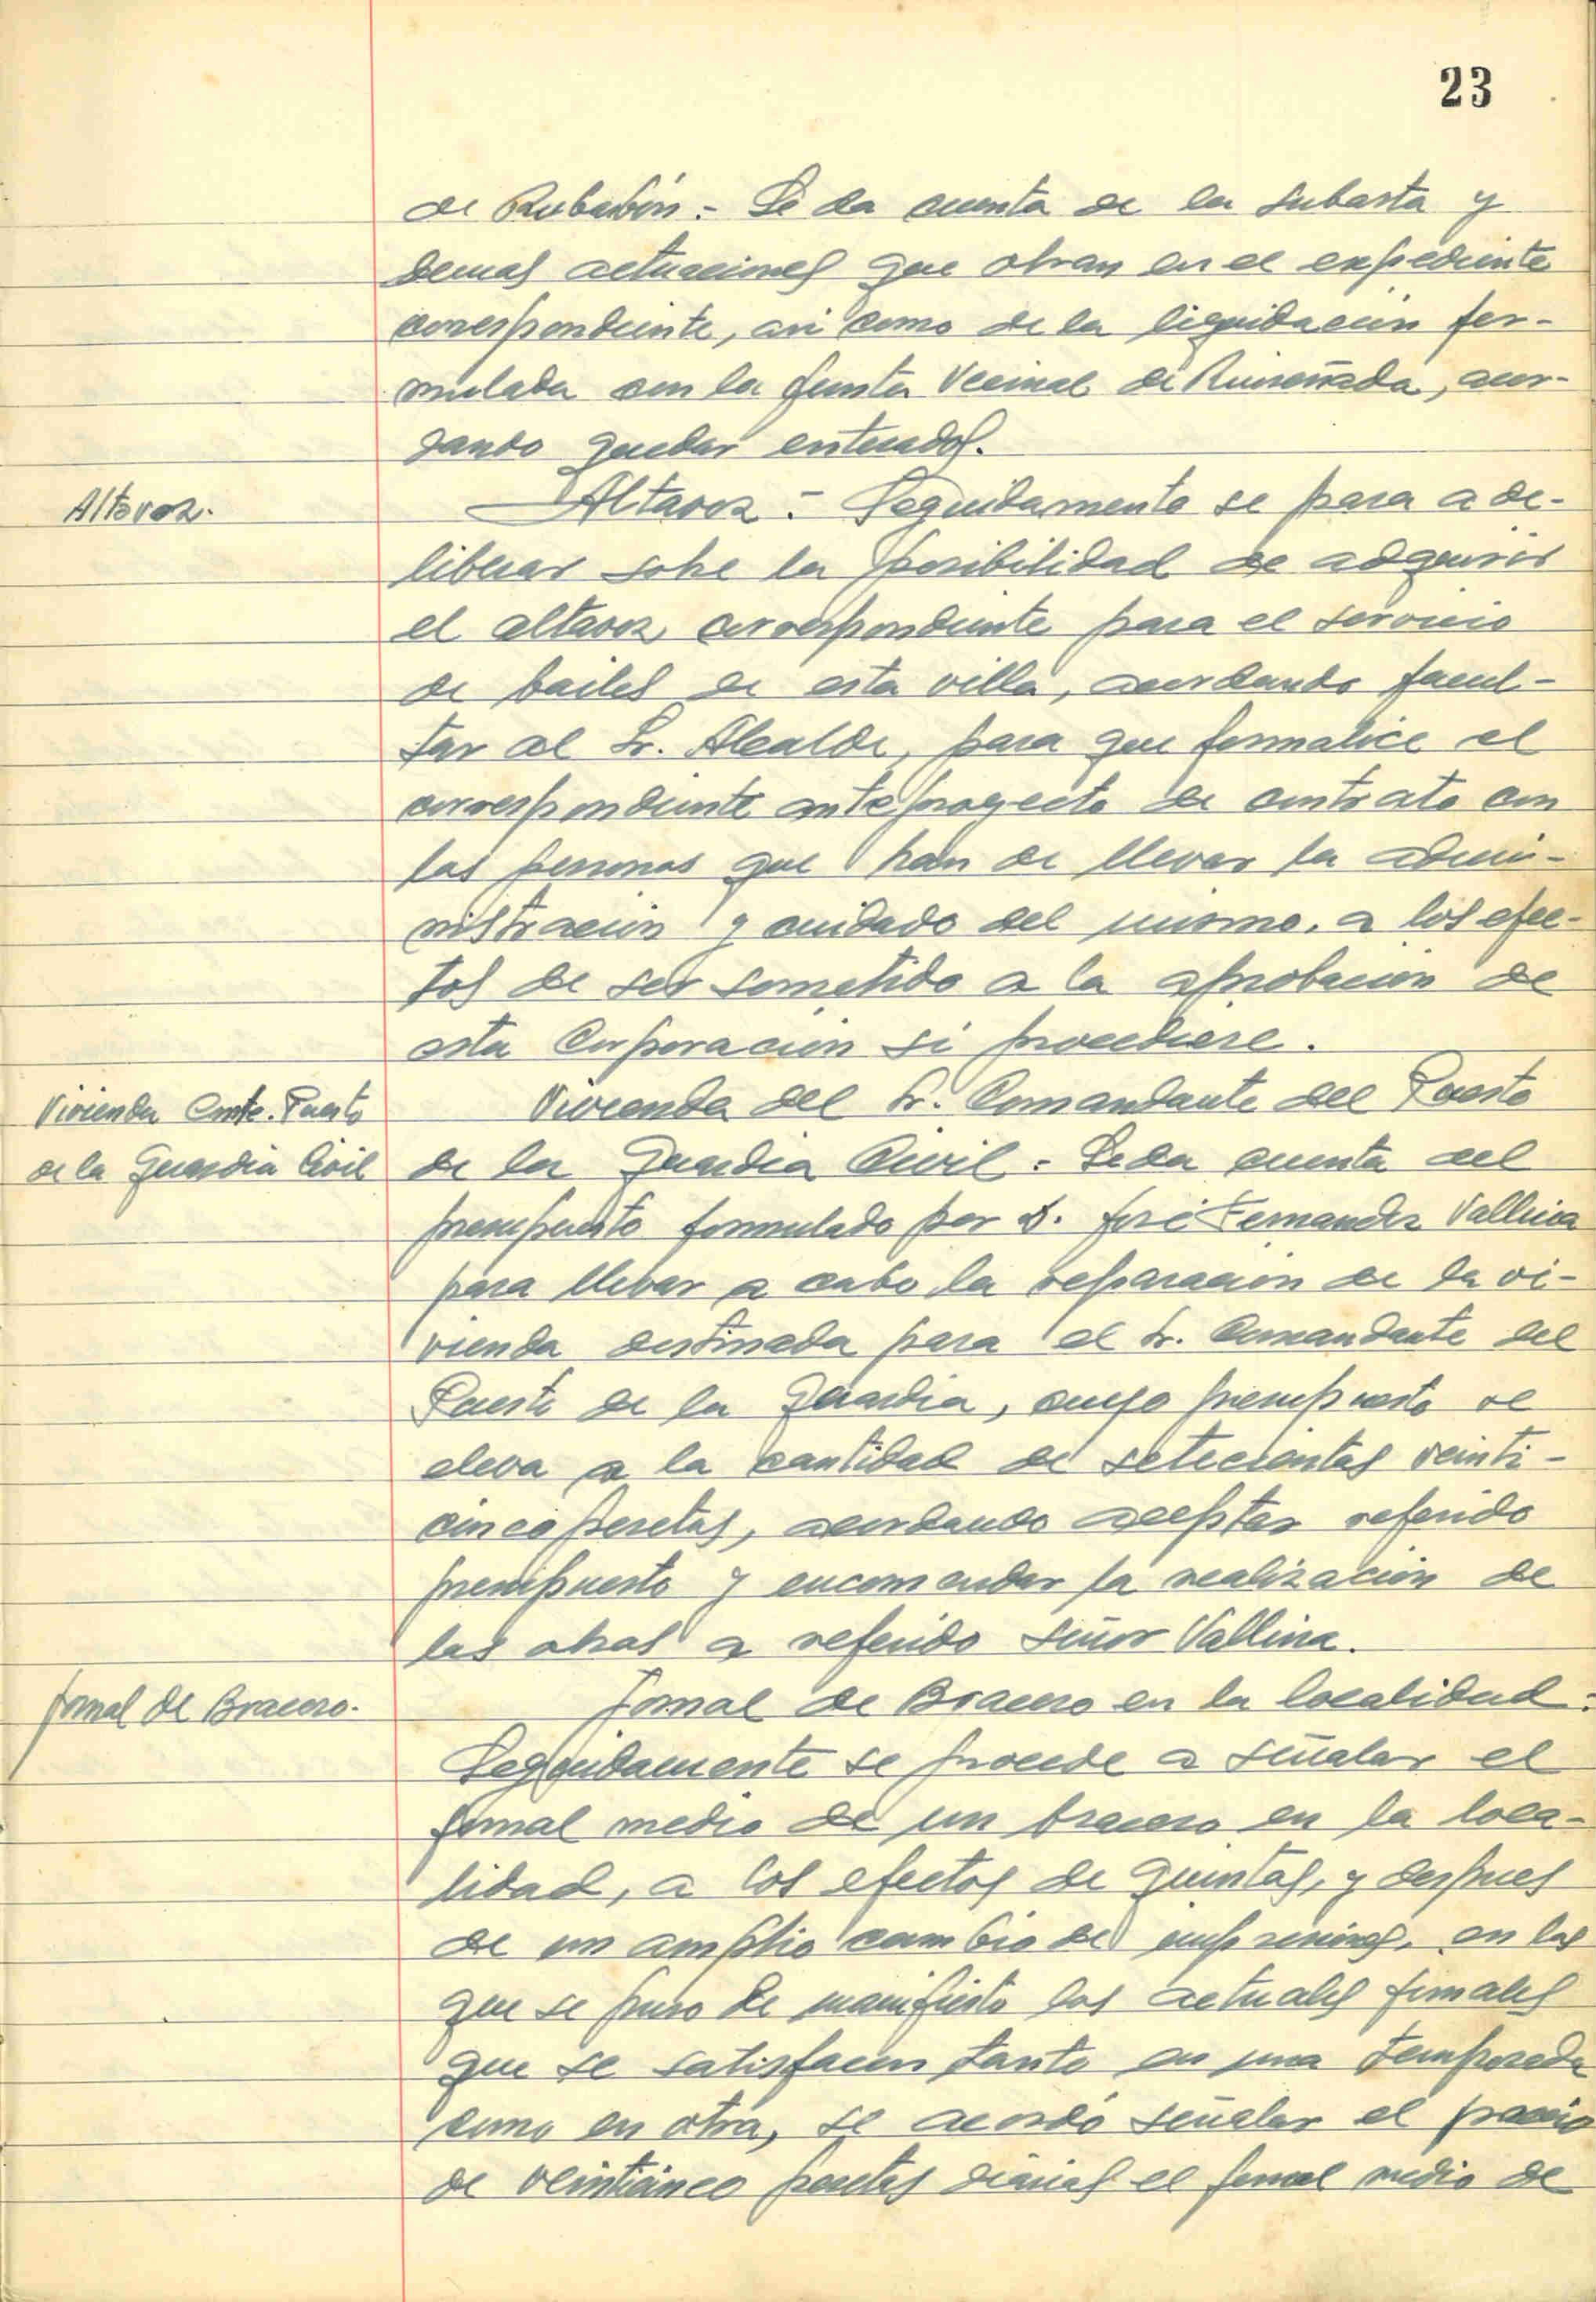 23
de Rubarbón.- Se da cuenta de la subasta y
demas actuaciones que obran en el expediente
correspondiente, asi como de la liquidación for-
mulada con la Junta Vecinal de Ruiseñada, acor-
dando quedar enterados.
Altavoz.
Altavoz.- Seguidamente se pasa a de-
liberar sobre la posibilidad de adquirir
el altavoz correspondiente para el servicio
de bailes de esta villa, acordando facul-
tar al Sr. Alcalde, para que formalice el
correspondiente anteproyecto de contrato con
las personas que han de llevar la admi-
nistración y cuidado del mismo, a los efec-
tos de ser sometido a la aprobación de
esta Corporación si procediere.
Vivienda Cmte. Puesto
de la Guardia Civil
Vivienda del Sr. Comandante del Puesto
de la Guardia Civil.- Se da cuenta del
presupuesto formulado por D. José Fernandez Vallina
para llevar a cabo la reparación de la vi-
vienda destinada para el Sr. Comandante del
Puesto de la Guardia, cuyo presupuesto se
eleva a la cantidad de setecientas veinti-
cinco pesetas, acordando aceptar referido
presupuesto y encomendar la realización de
las obras a referido señor Vallina.
Jornal de Bracero.
Jornal de Bracero en la localidad:
Seguidamente se procede a señalar el
jornal medio de un bracero en la loca-
lidad, a los efectos de quintas, y despues
de un amplio cambio de impresiones, en las
que se puso de manifiesto los actuales jornales
que se satisfacen tanto en una temporada
como en otra, se acordó señalar el precio
de veinticinco pesetas diarias el jornal medio de